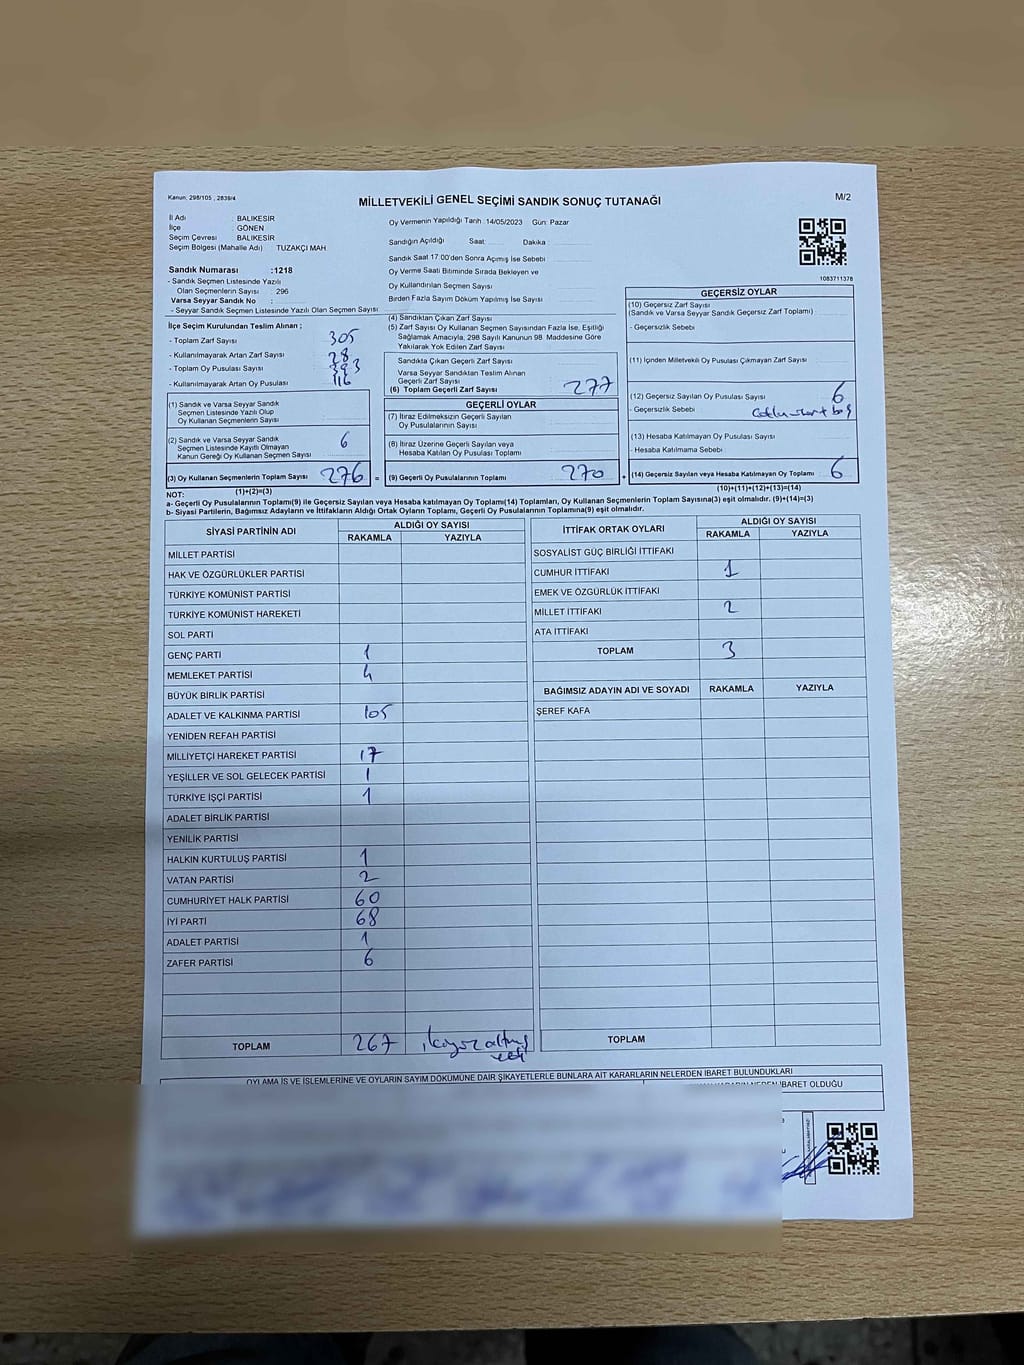 Kanun: 298/105 , 2839/4
MİLLETVEKİLİ GENEL SEÇİMİ SANDIK SONUÇ TUTANAĞI
M/2
İl Adı : BALIKESİR
İlçe : GÖNEN
Seçim Çevresi : BALIKESİR
Seçim Bölgesi (Mahalle Adı) : TUZAKÇI MAH.
Sandık Numarası :1218
- Sandık Seçmen Listesinde Yazılı
Olan Seçmenlerin Sayısı : 296
Varsa Seyyar Sandık No :
- Seyyar Sandık Seçmen Listesinde Yazılı Olan Seçmen Sayısı
Oy Vermenin Yapıldığı Tarih :14/05/2023 Gün: Pazar
Sandığın Açıldığı Saat: Dakika
Sandık Saat 17.00'den Sonra Açımış İse Sebebi
Oy Verme Saati Bitiminde Sırada Bekleyen ve
Oy Kullandırılan Seçmen Sayısı
Birden Fazla Sayım Döküm Yapılmış İse Sayısı
1083711378
İlçe Seçim Kurulundan Teslim Alınan ;
- Toplam Zarf Sayısı 305
- Kullanılmayarak Artan Zarf Sayısı 28
- Toplam Oy Pusulası Sayısı 393
- Kullanılmayarak Artan Oy Pusulası 116
(1) Sandık ve Varsa Seyyar Sandık
Seçmen Listesinde Yazılı Olup
Oy Kullanan Seçmenlerin Sayısı
(2) Sandık ve Varsa Seyyar Sandık
Seçmen Listesinde Kayıtlı Olmayan
Kanun Gereği Oy Kullanan Seçmen Sayısı 6
(3) Oy Kullanan Seçmenlerin Toplam Sayısı 276
(1)+(2)=(3)
(4) Sandıktan Çıkan Zarf Sayısı
(5) Zarf Sayısı Oy Kullanan Seçmen Sayısından Fazla İse, Eşitliği
Sağlamak Amacıyla, 298 Sayılı Kanunun 98. Maddesine Göre
Yakılarak Yok Edilen Zarf Sayısı
Sandıkta Çıkan Geçerli Zarf Sayısı
Varsa Seyyar Sandıktan Teslim Alınan
Geçerli Zarf Sayısı
(6) Toplam Geçerli Zarf Sayısı 277
GEÇERLİ OYLAR
(7) İtiraz Edilmeksizin Geçerli Sayılan
Oy Pusulalarının Sayısı
(8) İtiraz Üzerine Geçerli Sayılan veya
Hesaba Katılan Oy Pusulası Toplamı
= (9) Geçerli Oy Pusulalarının Toplamı 270
GEÇERSİZ OYLAR
(10) Geçersiz Zarf Sayısı
(Sandık ve Varsa Seyyar Sandık Geçersiz Zarf Toplamı)
- Geçersizlik Sebebi
(11) İçinden Milletvekili Oy Pusulası Çıkmayan Zarf Sayısı
(12) Geçersiz Sayılan Oy Pusulası Sayısı 6
- Geçersizlik Sebebi boş
(13) Hesaba Katılmayan Oy Pusulası Sayısı
- Hesaba Katılmama Sebebi
+ (14) Geçersiz Sayılan veya Hesaba Katılmayan Oy Toplamı 6
(10)+(11)+(12)+(13)=(14)
NOT:
a- Geçerli Oy Pusulalarının Toplamı(9) ile Geçersiz Sayılan veya Hesaba katılmayan Oy Toplamı(14) Toplamları, Oy Kullanan Seçmenlerin Toplam Sayısına(3) eşit olmalıdır. (9)+(14)=(3)
b- Siyasi Partilerin, Bağımsız Adayların ve İttifakların Aldığı Ortak Oyların Toplamı, Geçerli Oy Pusulalarının Toplamına(9) eşit olmalıdır.
SİYASİ PARTİNİN ADI ALDIĞI OY SAYISI
RAKAMLA YAZIYLA
MİLLET PARTİSİ
HAK VE ÖZGÜRLÜKLER PARTİSİ
TÜRKİYE KOMÜNİST PARTİSİ
TÜRKİYE KOMÜNİST HAREKETİ
SOL PARTİ
GENÇ PARTİ 1
MEMLEKET PARTİSİ 4
BÜYÜK BİRLİK PARTİSİ
ADALET VE KALKINMA PARTİSİ 105
YENİDEN REFAH PARTİSİ
MİLLİYETÇİ HAREKET PARTİSİ 17
YEŞİLLER VE SOL GELECEK PARTİSİ 1
TÜRKİYE İŞÇİ PARTİSİ 1
ADALET BİRLİK PARTİSİ
YENİLİK PARTİSİ
HALKIN KURTULUŞ PARTİSİ 1
VATAN PARTİSİ 2
CUMHURİYET HALK PARTİSİ 60
İYİ PARTİ 68
ADALET PARTİSİ 1
ZAFER PARTİSİ 6
TOPLAM 267 ikiyüz altmış
yedi
İTTİFAK ORTAK OYLARI ALDIĞI OY SAYISI
RAKAMLA YAZIYLA
SOSYALİST GÜÇ BİRLİĞİ İTTİFAKI
CUMHUR İTTİFAKI 1
EMEK VE ÖZGÜRLÜK İTTİFAKI
MİLLET İTTİFAKI 2
ATA İTTİFAKI
TOPLAM 3
BAĞIMSIZ ADAYIN ADI VE SOYADI RAKAMLA YAZIYLA
ŞEREF KAFA
TOPLAM
OYLAMA İŞ VE İŞLEMLERİNE VE OYLARIN SAYIM DÖKÜMÜNE DAİR ŞİKAYETLERLE BUNLARA AİT KARARLARIN NELERDEN İBARET BULUNDUKLARI
İBARET OLDUĞU